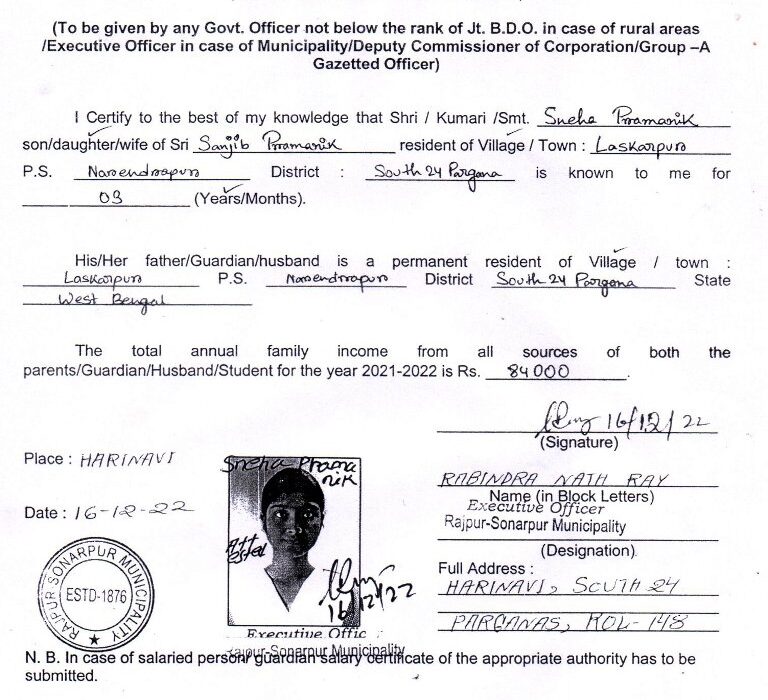 (To be given by any Govt. Officer not below the rank of Jt. B.D.O. in case of rural areas
/Executive Officer in case of Municipality/Deputy Commissioner of Corporation/Group –A
Gazetted Officer)
I Certify to the best of my knowledge that Shri / Kumari /Smt. Sneha Pramanik
son/daughter/wife of Sri Sanjib Pramanik resident of Village / Town : Laskarpur
P.S. Narendrapur District : South 24 Pargana is known to me for
03 (Years/Months).
His/Her father/Guardian/husband is a permanent resident of Village / town :
Laskarpur P.S. Narendrapur District South 24 Pargana State
West Bengal
The total annual family income from all sources of both the
parents/Guardian/Husband/Student for the year 2021-2022 is Rs. 84000.
16/12/22
(Signature)
Place : HARINAVI
Sneha Prama
nik
RABINDRA NATH RAY
Name (in Block Letters)
Executive Officer
Date : 16-12-22
Rajpur-Sonarpur Municipality
(Designation)
Attested
Full Address :
HARINAVI, SOUTH 24
PARGANAS, KOL-148
16/12/22
RAJPUR SONARPUR MUNICIPALITY
ESTD-1876
Executive Offic
Rajpur-Sonarpur Municipality
N. B. In case of salaried person/ guardian salary certificate of the appropriate authority has to be
submitted.